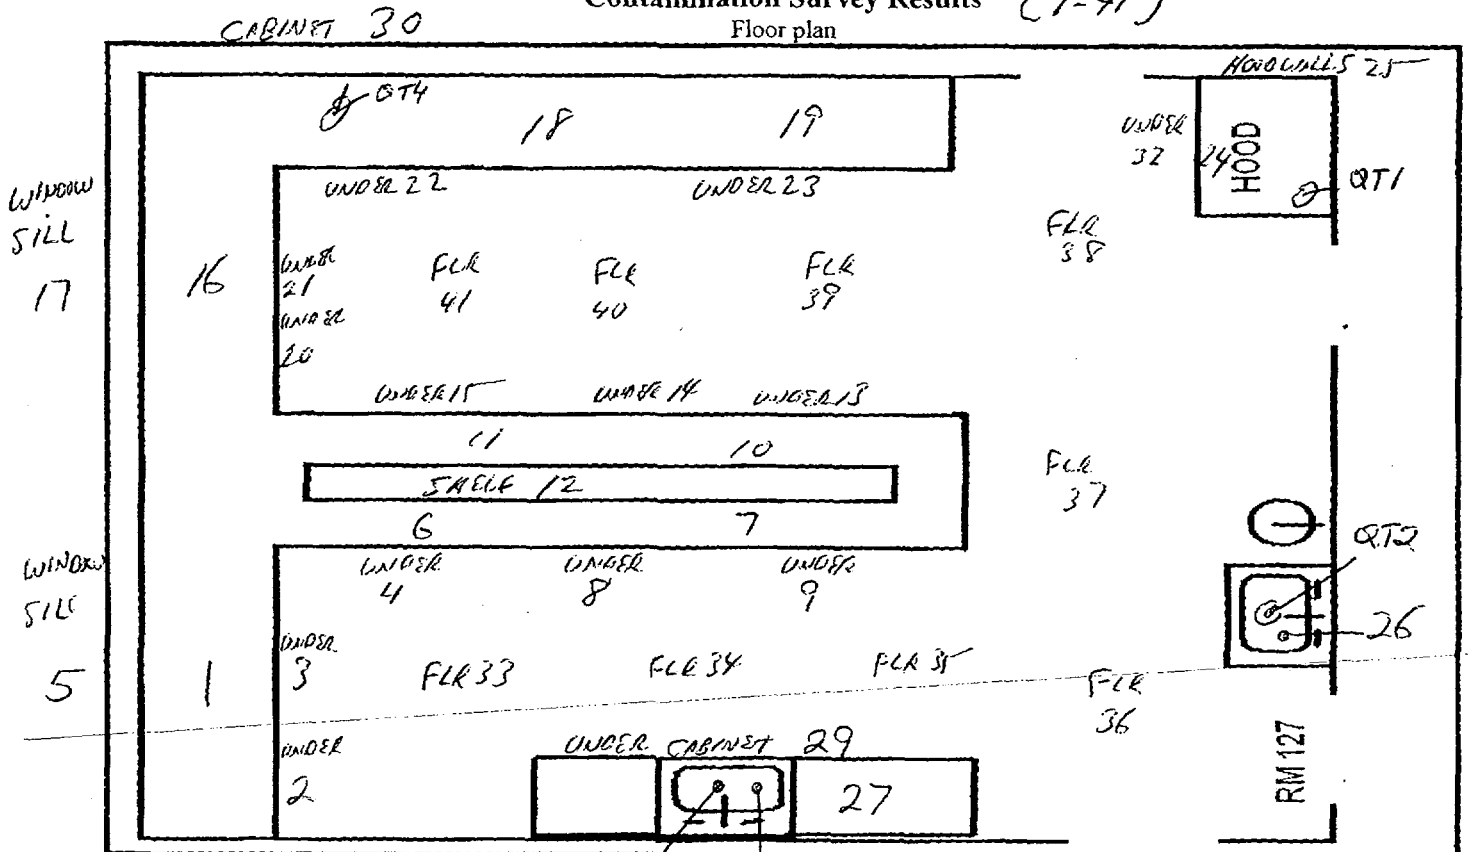 Contamination Survey Results (1-41)
Floor plan
CABINET 30
HOOD WALLS 25
QT4
18
19
UNDER 32
24
HOOD
QT1
WINDOW SILL 17
UNDER 22
UNDER 23
FLR 38
16
UNDER 21
FLR 41
FLR 40
FLR 39
UNDER 20
UNDER 15
UNDER 14
UNDER 13
11
10
SHELF 12
FLR 37
6
7
QT2
WINDOW SILL 5
UNDER 4
UNDER 8
UNDER 9
26
1
UNDER 3
FLR 33
FLR 34
FLR 35
FLR 36
UNDER 2
UNDER CABINET 29
27
RM 127